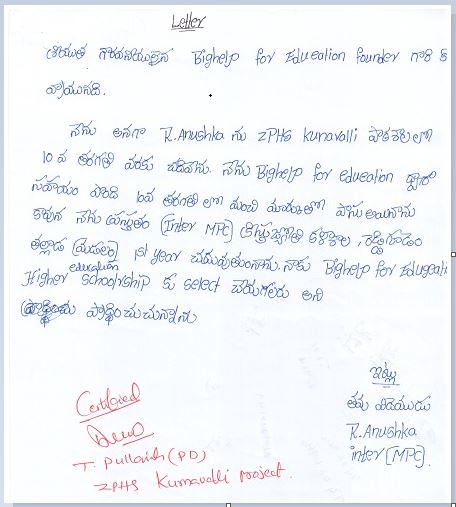 Letter
శ్రీయుత గౌరవనీయులైన Bighelp for Education founder గారి కి
వ్రాయునది.
నేను అనగా K.Anushka ను ZPHS kunavalli పాఠశాలలో
10 వ తరగతి వరకు చదివాను. నేను Bighelp for education ద్వారా
సహాయం పొంది 10వ తరగతి లో మంచి మార్కులతో పాసు అయినాను
కావున నేను ప్రస్తుతం (Inter MPC) కళాశాల
తల్లాడ (మండలం) 1st year చదువుతున్నాను. నాకు Bighelp for Edugeati
education
Higher schoolrship కు select చేయగలరు అని
ప్రార్థించుచున్నాను
ఇట్లు
తమ విదేయుడు
K.Anushka
inter (MPC).
Certified
T. Pullaiah (PD)
ZPHS Kurnavalli project.